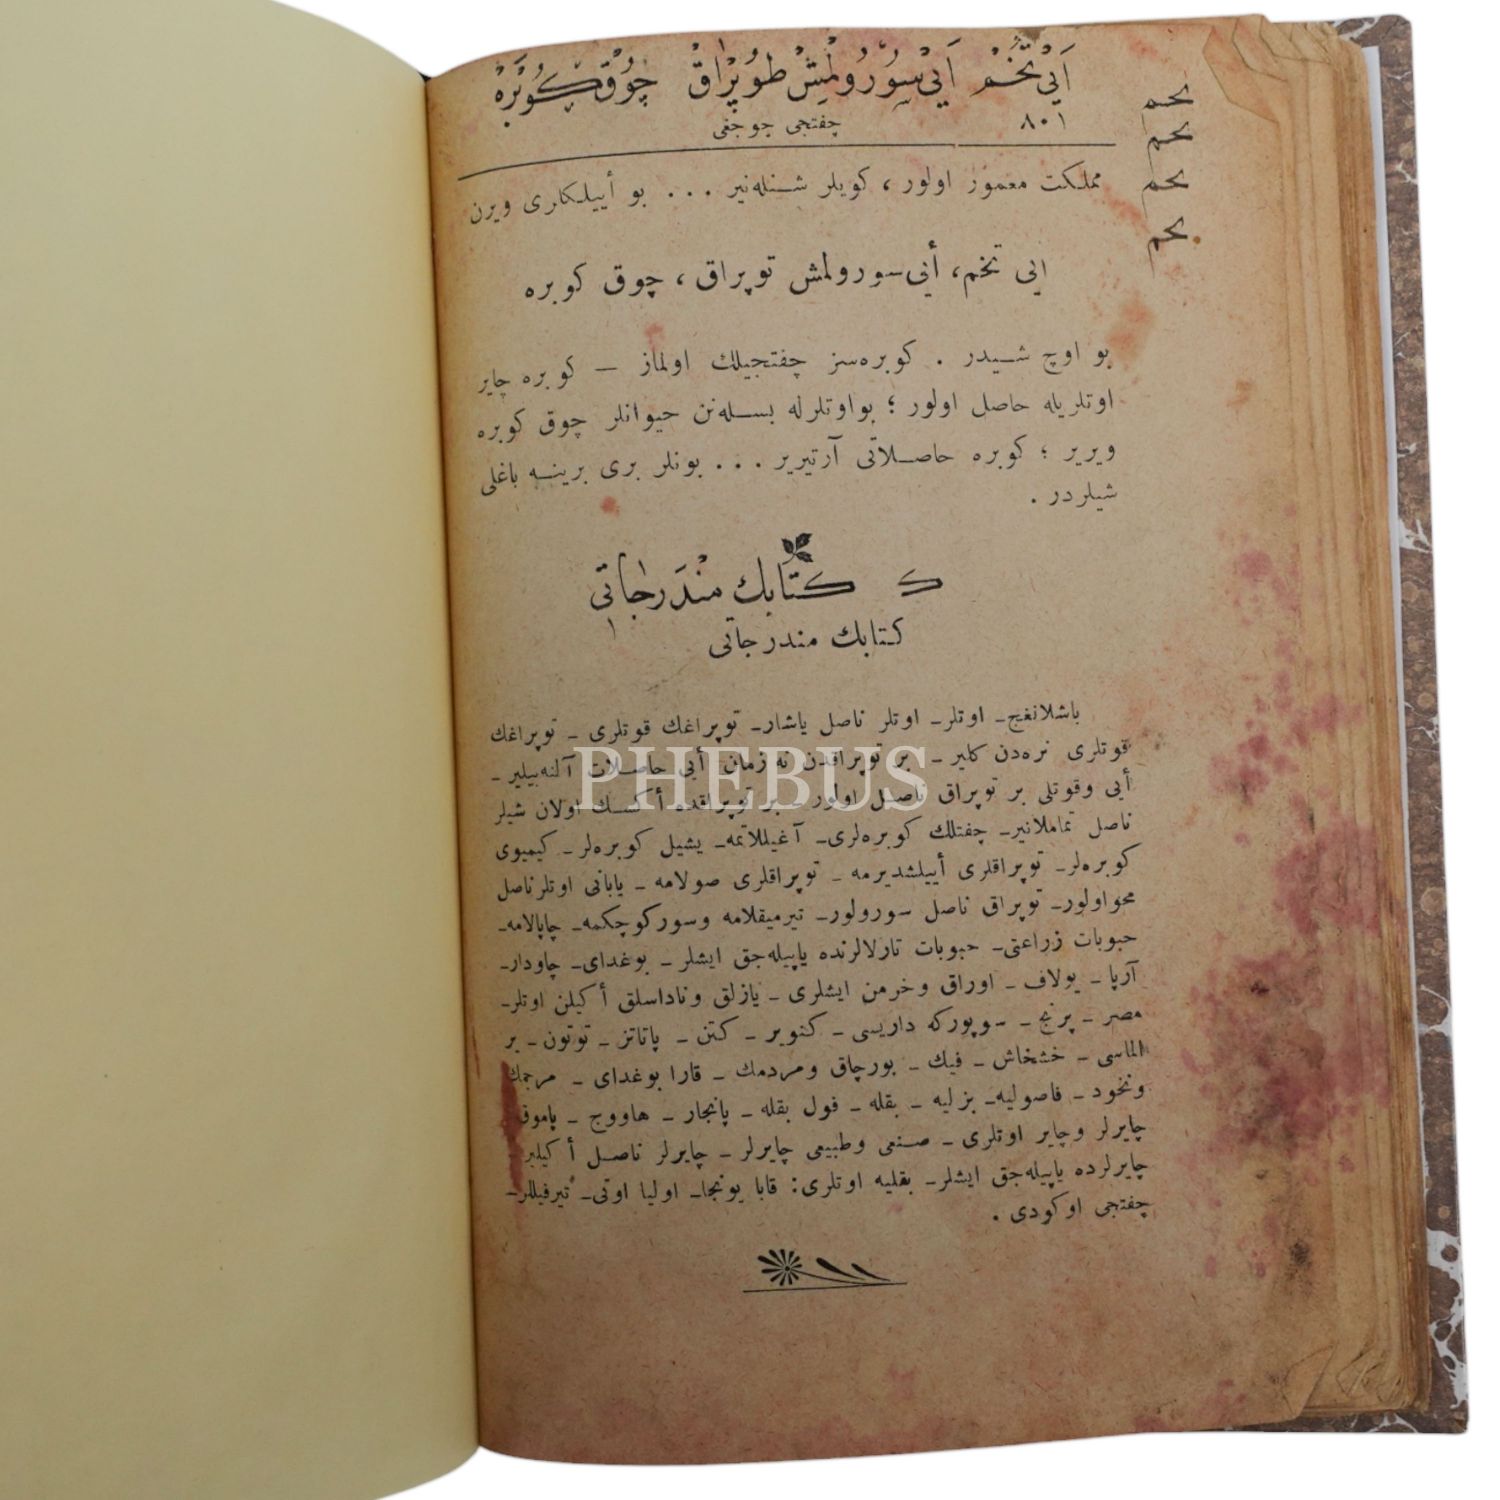 اَيْ تُخْمْ اَيْ سُورُولْمِشْ طُوپْرَاقْ چُوقْ كُوبْرَهْ
٨٠١
چفتجى چوجغى
يحم
يحم
يحم
يحم
مملكت معمور اولور ، كويلر شنله‌نير . . . بو أييلكلرى ويرن
ايى تخم، أيى سورولمش توپراق ، چوق كوبره
بو اوچ شيدر . كوبره‌سز چفتجيلك اولماز — كوبره چاير
اوتلريله حاصل اولور ؛ بواوتلرله بسله‌نن حيوانلر چوق كوبره
ويرير ؛ كوبره حاصلاتى آرتيرير . . . بونلر برى برينه باغلى
شيلردر .
كتابك مندرجاتى
كتابك مندرجاتى
باشلانغج ـ اوتلر ـ اوتلر ناصل ياشار ـ توپراغك قوتلرى ـ توپراغك
قوتلرى نره‌دن كلير ـ بر توپراقدن نه زمان أيى حاصلات آلنه‌بيلير ـ
أيى وقوتلى بر توپراق ناصل اولور ـ بر توپراقده أكسك اولان شيلر
ناصل تماملانير ـ چفتلك كوبره‌لرى ـ آغيللاتمه ـ يشيل كوبره‌لر ـ كيميوى
كوبره‌لر ـ توپراقلرى أييلشديرمه ـ توپراقلرى صولامه ـ يابانى اوتلر ناصل
محو اولور ـ توپراق ناصل سورولور ـ تيرميقلامه وسوركوچكمه ـ چاپالامه ـ
حبوبات زراعتى ـ حبوبات تارلالرنده ياپيله‌جق ايشلر ـ بوغداى ـ چاودار ـ
آرپا ـ يولاف ـ اوراق وخرمن ايشلرى ـ يازلق وناداسلق أكيلن اوتلر ـ
مصر ـ پرنج ـ سوپوركه داريسى ـ كنوير ـ كتن ـ پاتاتز ـ توتون ـ ير
الماسى ـ خشخاش ـ فيك ـ بورچاق ومردمك ـ قارا بوغداى ـ مرجمك
ونخود ـ فاصوليه ـ بزليه ـ بقله ـ فول بقله ـ پانجار ـ هاووج ـ پاموق
چايرلر وچاير اوتلرى ـ صنعى وطبيعى چايرلر ـ چايرلر ناصل أكيلير ـ
چايرلرده ياپيله‌جق ايشلر ـ بقليه اوتلرى : قابا يونجا ـ اوليا اوتى ـ تيرفيللر ـ
چفتجى اوكودى .
PHEBUS